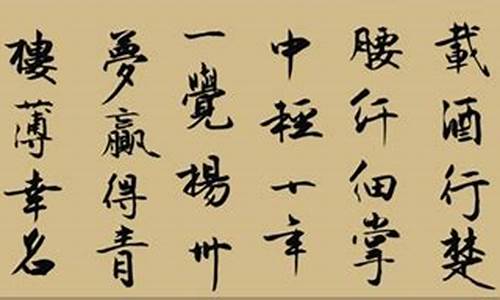 載酒行楚
腰纤細掌
中輕十年
一覺揚州
夢贏得青
樓薄幸名